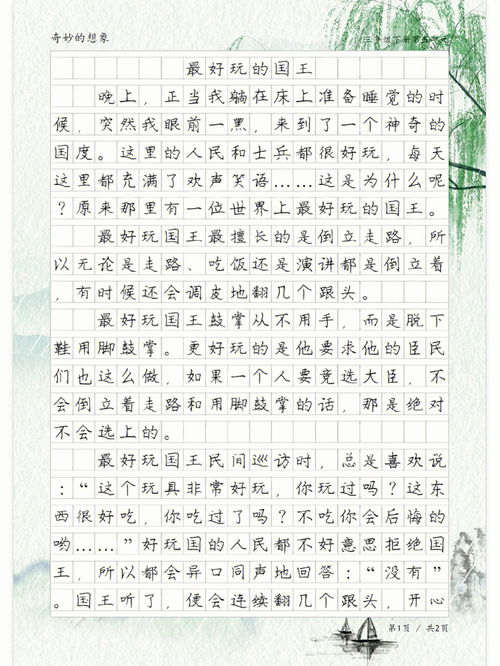 奇妙的想象
三年级下册第五单元
最好玩的国王
晚上，正当我躺在床上准备睡觉的时
候，突然我眼前一黑，来到了一个神奇的
国度。这里的人民和士兵都很好玩，每天
这里都充满了欢声笑语……这是为什么呢
？原来那里有一位世界上最好玩的国王。
最好玩国王最擅长的是倒立走路，所
以无论是走路、吃饭还是演讲都是倒立着
，有时候还会调皮地翻几个跟头。
最好玩国王鼓掌从不用手，而是脱下
鞋用脚鼓掌。更好玩的是他要求他的臣民
们也这么做，如果一个人要竞选大臣，不
会倒立着走路和用脚鼓掌的话，那是绝对
不会选上的。
最好玩国王民间巡访时，总是喜欢说
：“这个玩具非常好玩，你玩过吗？这东
西很好吃，你吃过了吗？不吃你会后悔的
哟……”好玩国的人民都不好意思拒绝国
王，所以都会异口同声地回答：“没有”
。国王听了，便会连续翻几个跟头，开心
第1页 / 共2页